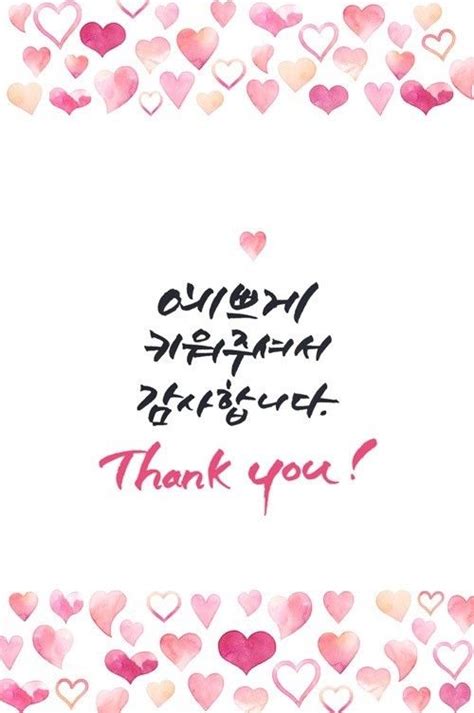 예쁘게
키워주셔서
감사합니다.
Thank you!